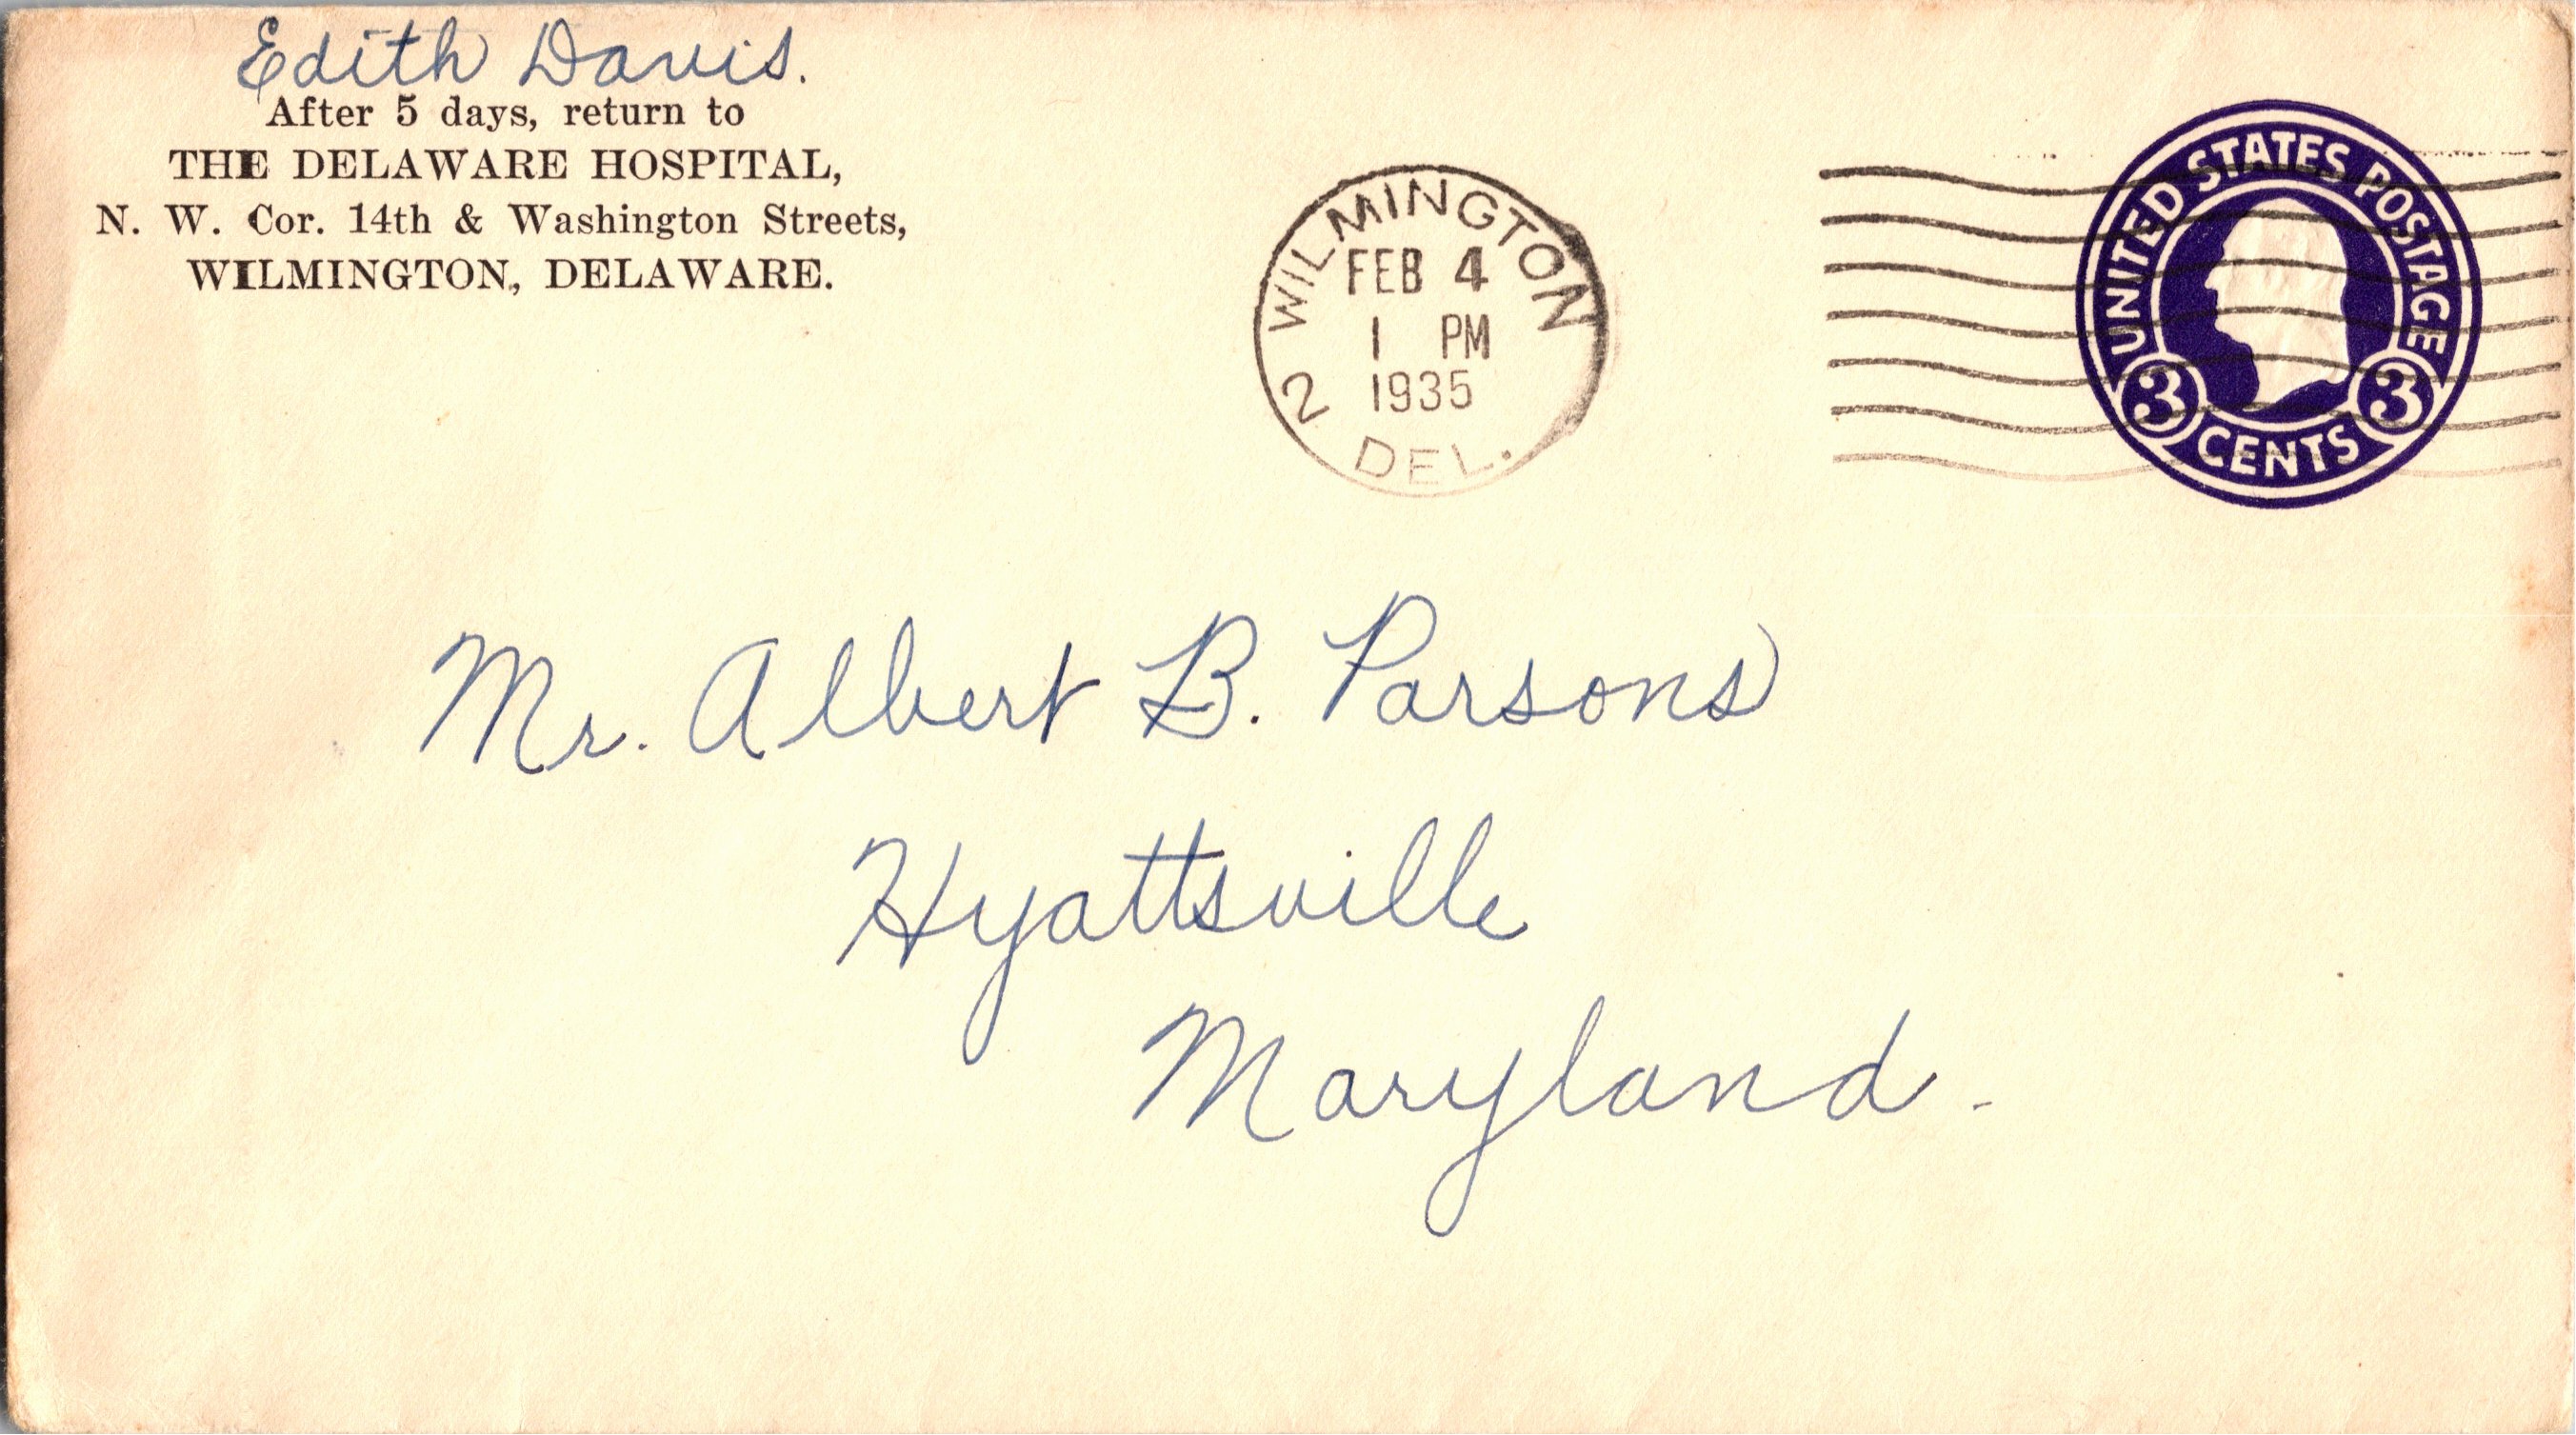 Edith Davis.
After 5 days, return to
THE DELAWARE HOSPITAL,
N. W. Cor. 14th & Washington Streets,
WILMINGTON, DELAWARE.
WILMINGTON
FEB 4
1 PM
1935
2
DEL.
UNITED STATES POSTAGE
3 3
CENTS
Mr. Albert B. Parsons
Hyattsville
Maryland.